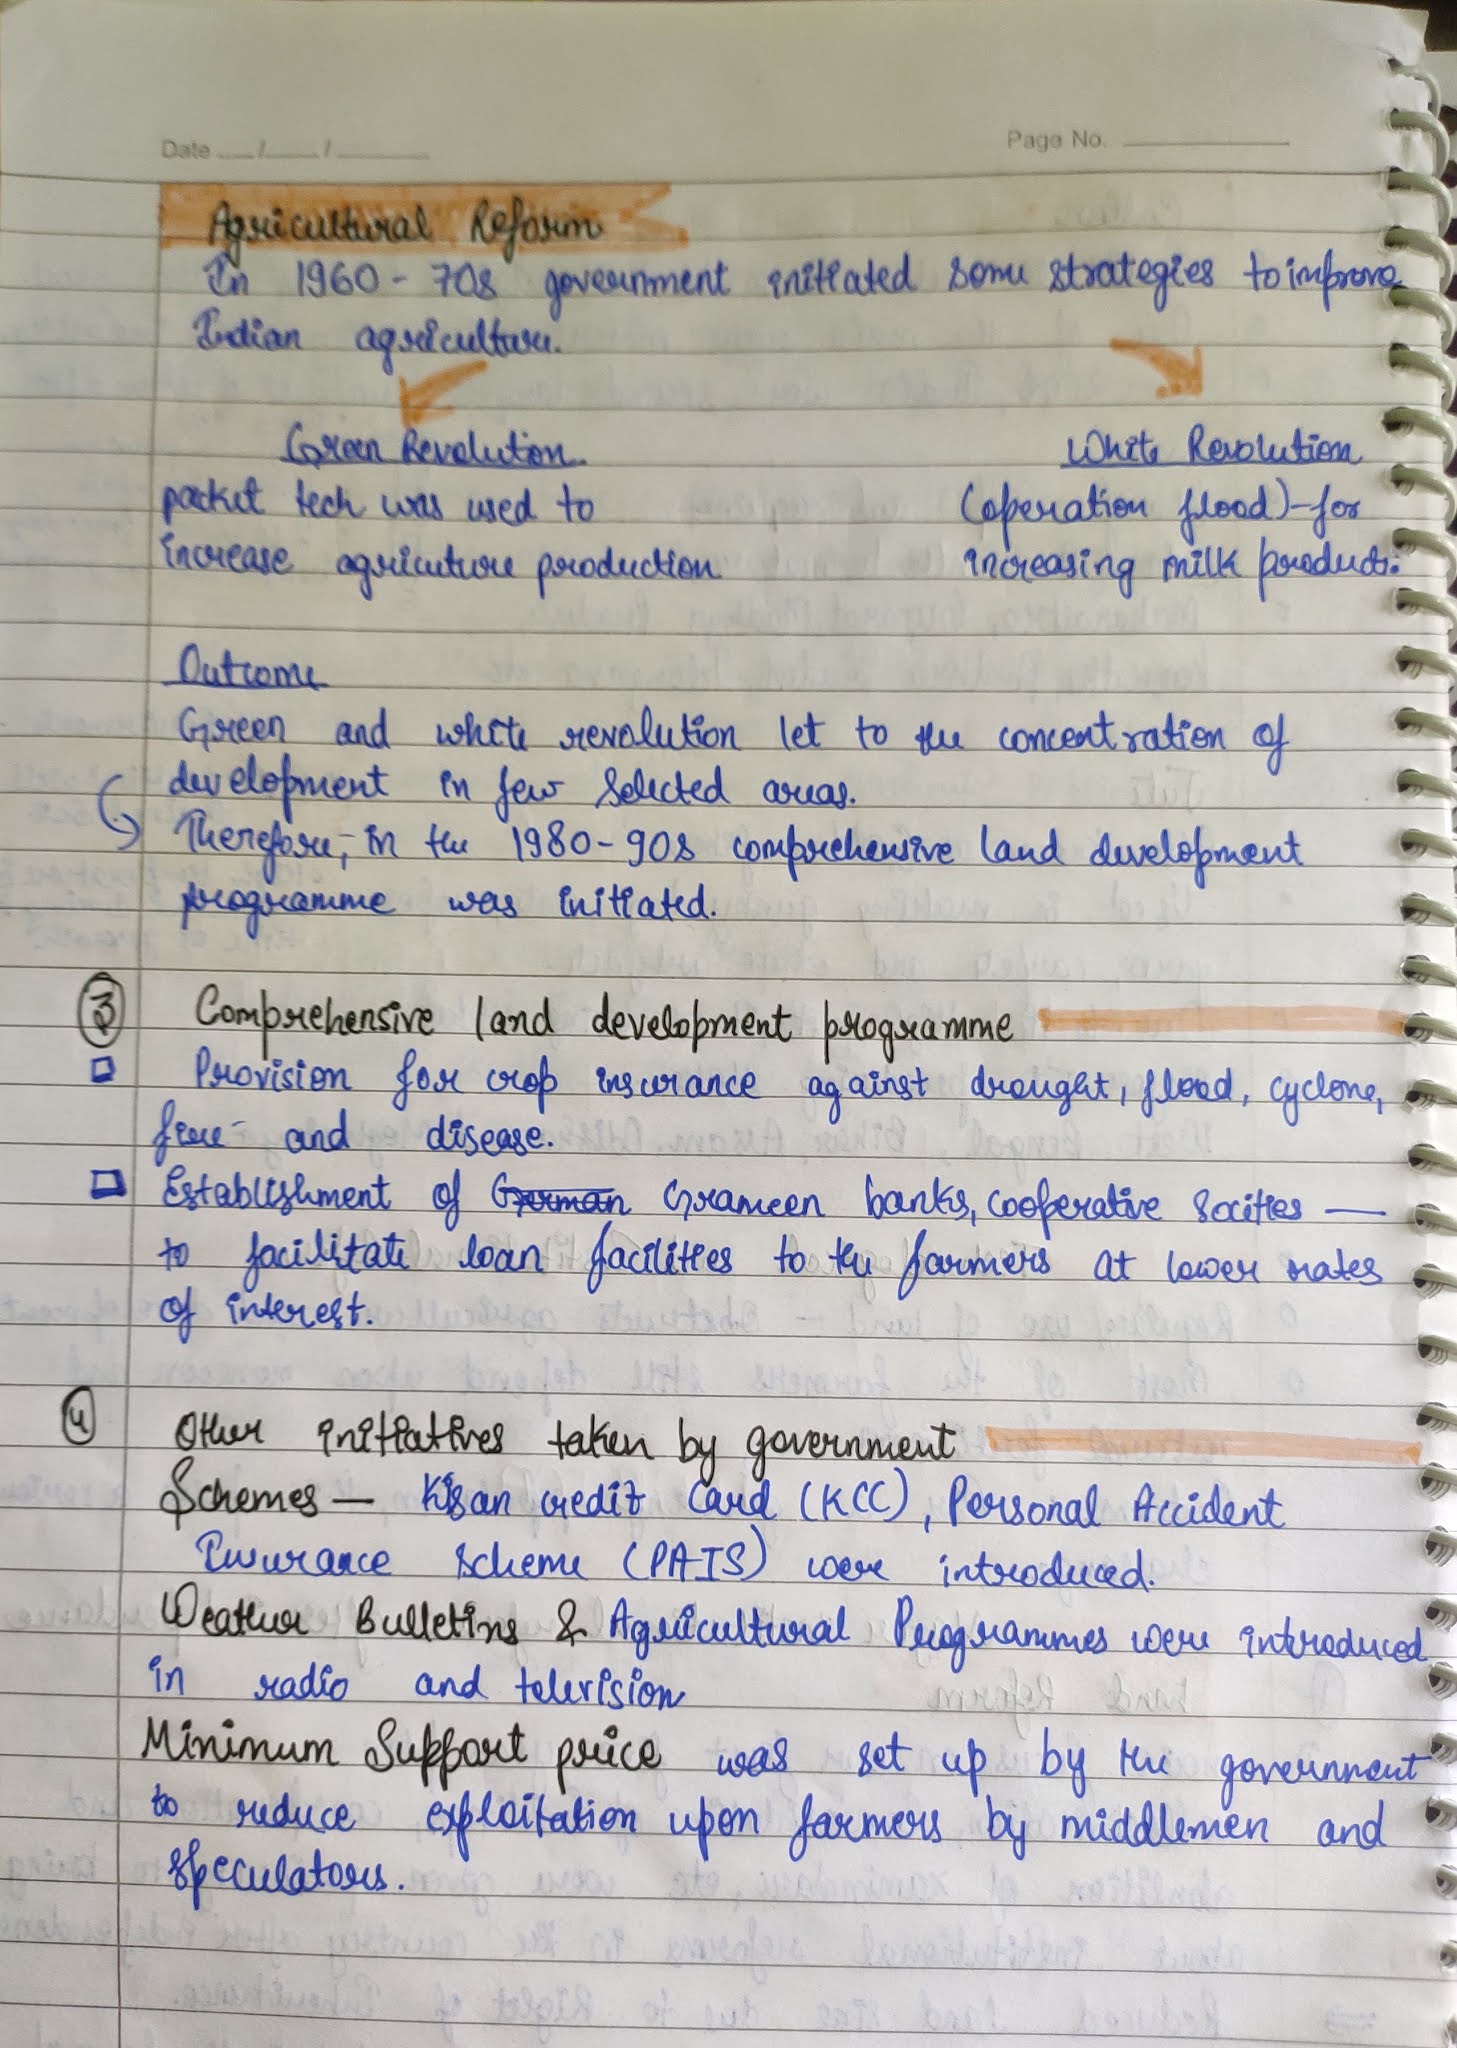 Date __/__/____
Page No. ________
Agricultural Reform
In 1960-70s government initiated some strategies to improve
Indian agriculture.
Green Revolution
packet tech was used to
increase agricuture production
White Revolution
(operation flood)-for
increasing milk product.
Outcome
Green and white revolution let to the concentration of
development in few selected areas.
Therefore, in the 1980-90s comprehensive land development
programme was initiated.
3 Comprehensive land development programme
Provision for crop insurance against drought, flood, cyclone,
fire and disease.
Establishment of German Grameen banks, cooperative socities —
to facilitate loan facilities to the farmers at lower rates
of interest.
4 Other initiatives taken by government
Schemes — Kisan credit Card (KCC), Personal Accident
Insurance scheme (PAIS) were introduced.
Weather Bulletins & Agricultural Programmes were introduced
in radio and television
Minimum Support price was set up by the government
to reduce exploitation upon farmers by middlemen and
speculators.